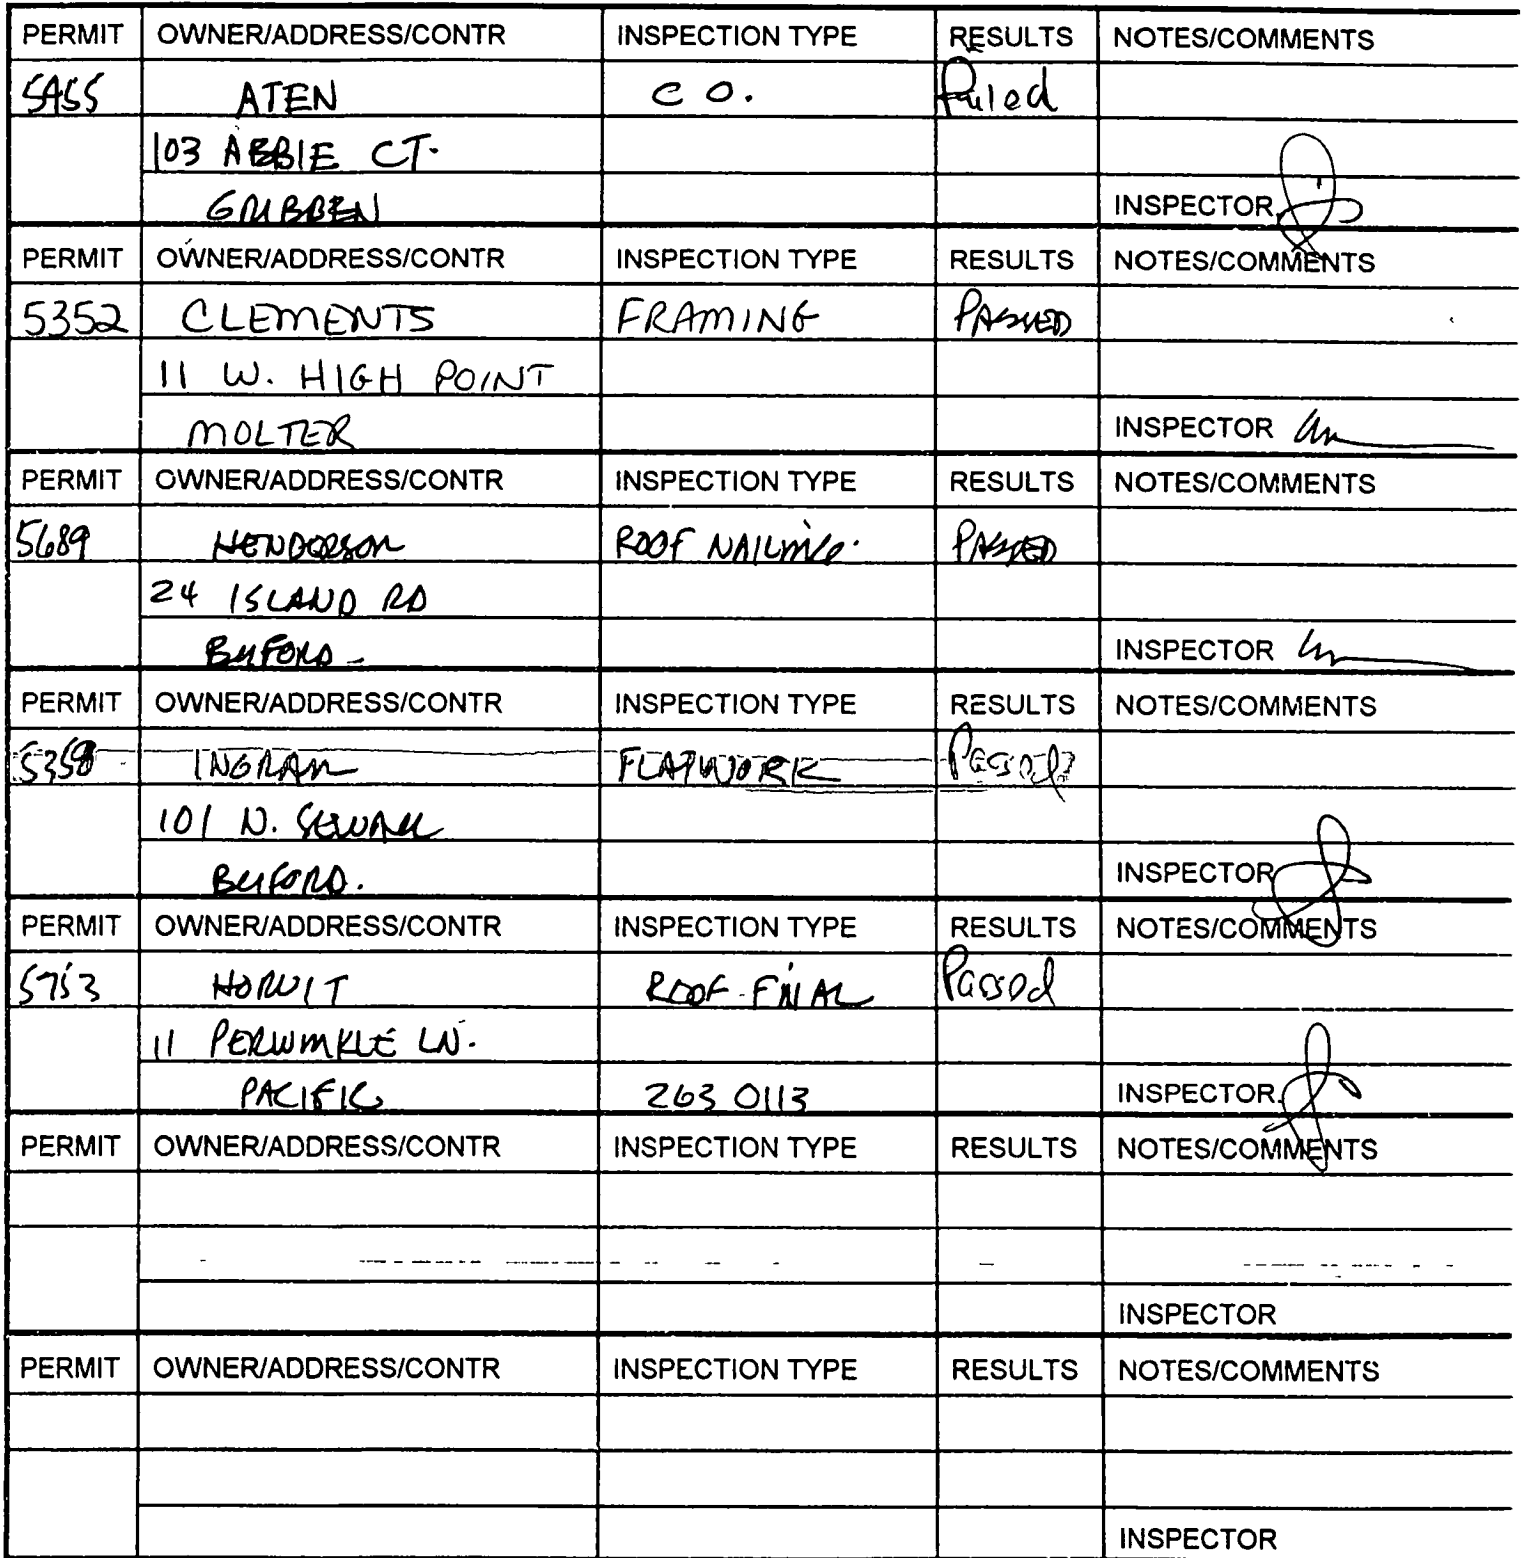 PERMIT OWNER/ADDRESS/CONTR INSPECTION TYPE RESULTS NOTES/COMMENTS
5455 ATEN C O. Failed
103 ABBIE CT.
GRIBBEN INSPECTOR
PERMIT OWNER/ADDRESS/CONTR INSPECTION TYPE RESULTS NOTES/COMMENTS
5352 CLEMENTS FRAMING PASSED
11 W. HIGH POINT
MOLTER INSPECTOR
PERMIT OWNER/ADDRESS/CONTR INSPECTION TYPE RESULTS NOTES/COMMENTS
5689 HENDERSON ROOF NAILING. PASSED
24 ISLAND RD
BUFORD INSPECTOR
PERMIT OWNER/ADDRESS/CONTR INSPECTION TYPE RESULTS NOTES/COMMENTS
INGRAM FLATWORK Passed
101 N. SEWALL
BUFORD. INSPECTOR
PERMIT OWNER/ADDRESS/CONTR INSPECTION TYPE RESULTS NOTES/COMMENTS
5753 HORWIT ROOF-FINAL Passed
11 PERWINKLE LN.
PACIFIC 263 0113 INSPECTOR
PERMIT OWNER/ADDRESS/CONTR INSPECTION TYPE RESULTS NOTES/COMMENTS
INSPECTOR
PERMIT OWNER/ADDRESS/CONTR INSPECTION TYPE RESULTS NOTES/COMMENTS
INSPECTOR